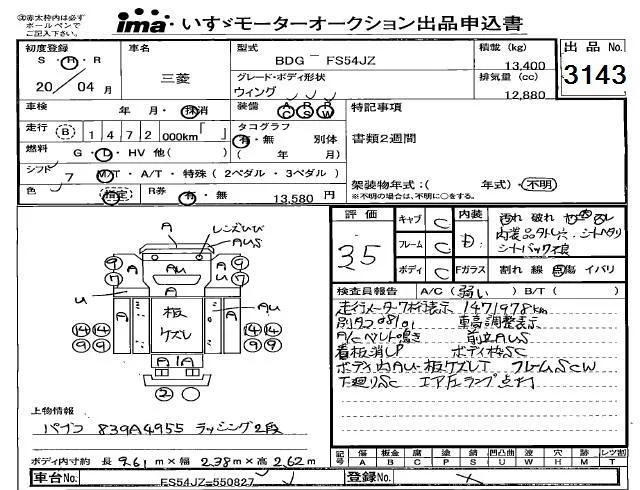 ㊟赤太枠内は必ず
ボールペンで
ご記入下さい。
ima いすゞモーターオークション出品申込書
初度登録 車名 型式 積載 (kg) 出品 No.
S・H・R 三菱 BDG － FS54JZ 13,400 3143
20 年 04 月 グレード・ボディ形状 排気量 (cc)
ウィング 12,880
車検 年・月・抹消 装備 AC PS PW 特記事項
走行 (B) 1472 000km「 」 タコグラフ 書類2週間
有・無 別体
燃料 G・D・HV 他( ) ( 年 月)
シフト 7 M/T・A/T・特殊 (2ペダル・3ペダル)
架装物年式:( 年式)・不明
色 指定 R券 有・無 13,580 円 ※不明の場合は、不明に○をする。
評価 35
キャブ C 内装 D 汚れ 破れ
フレーム C 内装品タトレ穴・シートヘタリ
シートバック不良
ボディ C Fガラス 割れ 線 傷 イバリ
検査員報告 A/C(弱い) B/T( )
走行メーター7桁表示 1471978km
別タコ08/01 車高調整表示
A/Cベルト鳴き 前立AUS
看板消しP ボディ枠SC
ボディ内AU・板ケズレT フレームSCW
下廻りSC エア圧ランプ点灯
レンズひび
AUS
A
A AU A
9 9
7 7
U AU
A 板ケズレ
14 14 14 14
9 9 9 9
A 1A A
2
上物情報
パブコ 839A4955 ラッシング2段
ボディ内寸約 長 9.61 m × 幅 2.38 m × 高 2.62 m
記号 傷 A 板金 B 腐 C 塗 P 錆 S 凹凸曲 U 波 W 穴 H 欠 M レツ割 T
車台No. FS54JZ-550827 登録No. ×